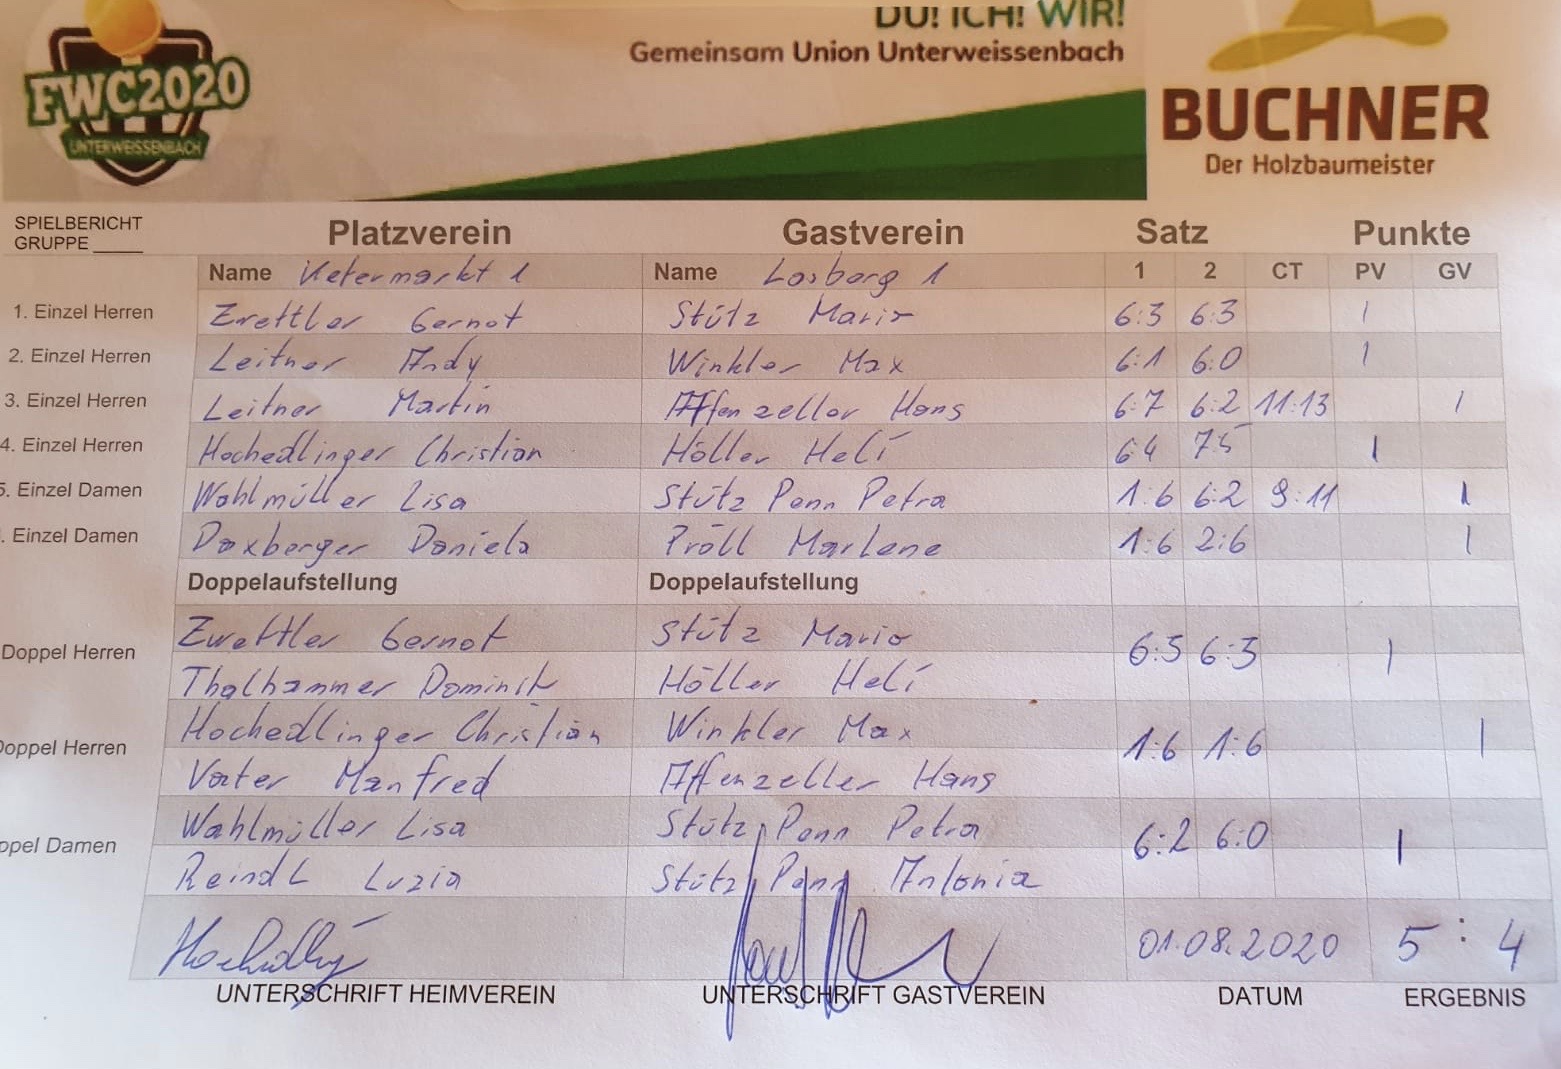 DU! ICH! WIR!
Gemeinsam Union Unterweissenbach
FWC2020
UNTERWEISSENBACH
BUCHNER
Der Holzbaumeister
SPIELBERICHT
GRUPPE ____
Platzverein Gastverein Satz Punkte
Name Kefermarkt 1 Name Lasberg 1 1 2 CT PV GV
1. Einzel Herren Zwettler Gernot Stütz Mario 6:3 6:3 1
2. Einzel Herren Leitner Andy Winkler Max 6:1 6:0 1
3. Einzel Herren Leitner Martin Affenzeller Hans 6:7 6:2 11:13 1
4. Einzel Herren Hochedlinger Christian Höller Heli 6:4 7:5 1
5. Einzel Damen Wahlmüller Lisa Stütz Penn Petra 1:6 6:2 9:11 1
. Einzel Damen Daxberger Daniela Pröll Marlene 1:6 2:6 1
Doppelaufstellung Doppelaufstellung
Zwettler Gernot Stütz Mario
Doppel Herren 6:3 6:3 1
Thalhammer Dominik Höller Heli
Hochedlinger Christian Winkler Max
Doppel Herren 1:6 1:6 1
Vater Manfred Affenzeller Hans
Wahlmüller Lisa Stütz Penn Petra
ppel Damen 6:2 6:0 1
Reindl Luzia Stütz Penn Antonia
01.08.2020 5 : 4
UNTERSCHRIFT HEIMVEREIN UNTERSCHRIFT GASTVEREIN DATUM ERGEBNIS